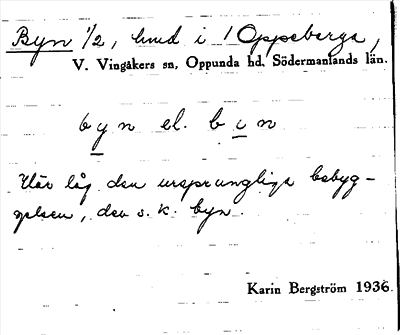 Byn 1/2, hmd i 1 Oppeberga,
V. Vingåkers sn, Oppunda hd, Södermanlands län.
byn el. byn
Här låg den ursprungliga bebyg-
gelsen, den s. k. byn.
Karin Bergström 1936.